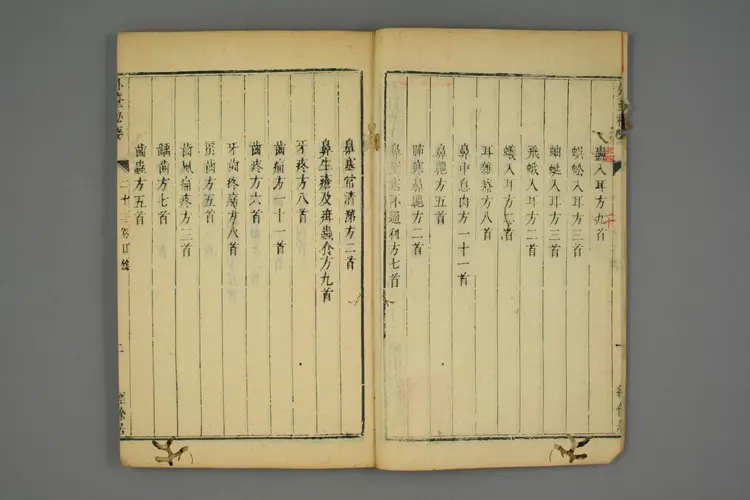 蟲入耳方九首
蜈蚣入耳方三首
蚰蜒入耳方三首
飛蛾入耳方二首
蟻入耳方二首
耳雜療方八首
鼻中息肉方一十一首
鼻齆方五首
肺寒鼻齆方二首
鼻窒塞不通利方七首
鼻塞常清涕方二首
鼻生瘡及疳蟲食方九首
牙疼方八首
齒痛方一十一首
齒疼方六首
牙齒疼痛方八首
蚛齒方五首
齒風痛疼方三首
齲齒方七首
齒蟲方五首
外臺秘要
二十二卷目錄
二
經餘居